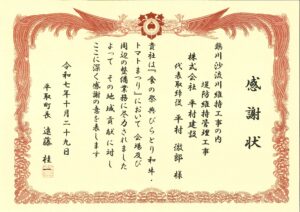 感謝状
鵡川沙流川維持工事の内
堤防維持管理工事
株式会社 平村建設
代表取締役 平村徹郎 様
貴社は『食の祭典びらとり和牛・
トマトまつり』において会場及び
周辺の整備業務に尽力されました
よって その地域貢献に対し
ここに深く感謝の意を表します
令和七年十月二十九日
平取町長 遠藤桂一